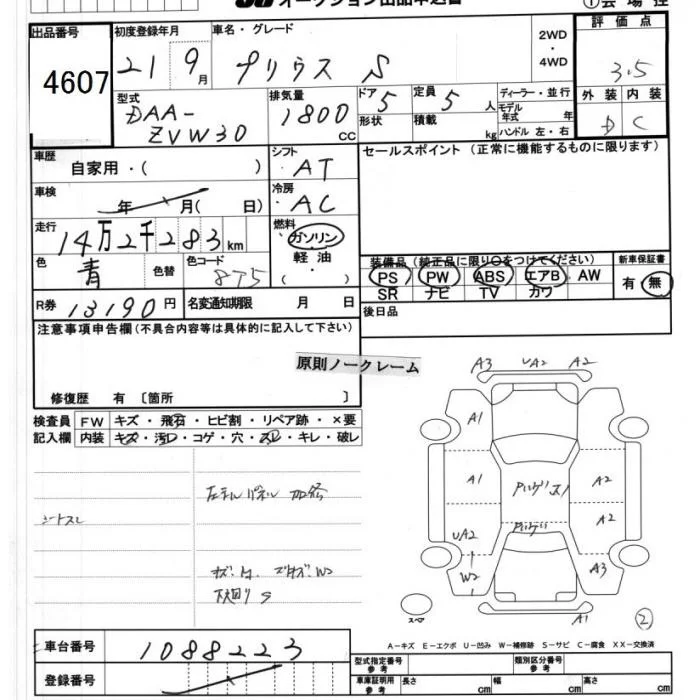 オークション出品申込書
①会場控
出品番号
4607
初度登録年月
21年9月
車名・グレード
プリウス S
2WD
・
4WD
評価点
3.5
外装 内装
D C
型式
DAA-
ZVW30
排気量
1800
CC
ドア
5
定員
5人
形状
積載
kg
ディーラー・並行
モデル
年式 年
ハンドル 左・右
車歴
自家用・( )
シフト
AT
セールスポイント (正常に機能するものに限ります)
車検
年 月( 日)
冷房
AC
走行
14万2千283km
燃料
ガソリン
軽油
・
( )
色
青
色替
色コード
8T5
装備品 (純正品に限り○をつけてください)
PS PW ABS エアB AW
SR ナビ TV カワ
新車保証書
有・無
R券 13190円
名変通知期限 月 日
後日品
注意事項申告欄(不具合内容等は具体的に記入して下さい)
原則ノークレーム
修復歴 有 〔箇所 〕
検査員
記入欄
FW キズ・飛石・ヒビ割・リペア跡・×要
内装 キズ・汚レ・コゲ・穴・スレ・キレ・破レ
シートスレ
下廻りS
A3 UA2 A2
A1
A1
A2
A2
UA2
W2
A3
A1
スペア
②
A-キズ E-エクボ U-凹み W-補修跡 S-サビ C-腐食 XX-交換済
車台番号
1088223
登録番号
型式指定番号
参考
類別区分番号
参考
車庫証明用
参考
長さ cm 幅 cm 高さ cm